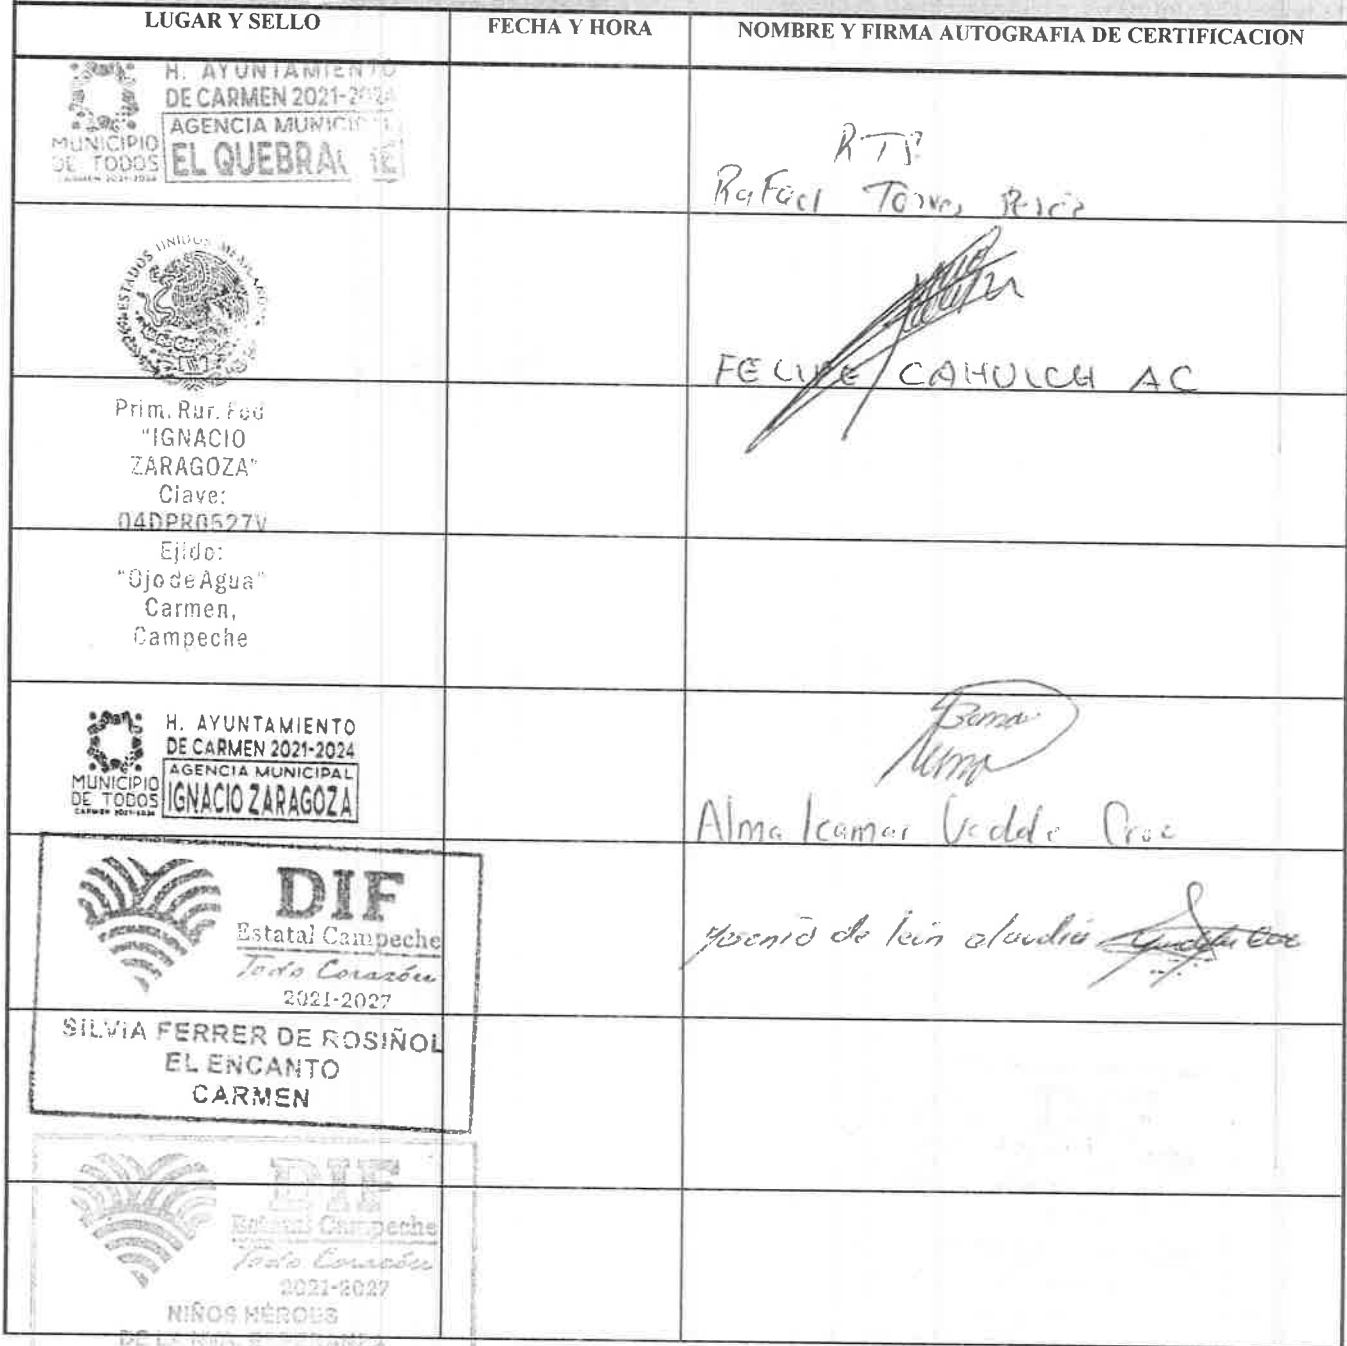 LUGAR Y SELLO
FECHA Y HORA
NOMBRE Y FIRMA AUTOGRAFIA DE CERTIFICACION
H. AYUNTAMIENTO
DE CARMEN 2021-2024
AGENCIA MUNICIPAL
MUNICIPIO
DE TODOS
CARMEN 2021-2024
EL QUEBRACHE
RTP
Rafael Torres Perez
ESTADOS UNIDOS MEXICANOS
FELIPE CAHUICH AC
Prim. Rur. Fed
"IGNACIO
ZARAGOZA"
Clave:
04DPR0527V
Ejido:
"Ojo de Agua"
Carmen,
Campeche
H. AYUNTAMIENTO
DE CARMEN 2021-2024
AGENCIA MUNICIPAL
MUNICIPIO
DE TODOS
CARMEN 2021-2024
IGNACIO ZARAGOZA
Alma
DIF
Estatal Campeche
Todo Corazón
2021-2027
SILVIA FERRER DE ROSIÑOL
EL ENCANTO
CARMEN
de
DIF
Estatal Campeche
Todo Corazón
2021-2027
NIÑOS HÉROES